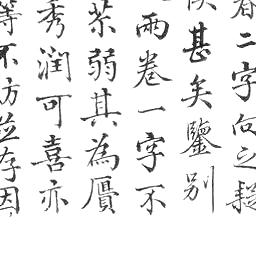 二字向之疑
甚矣鑒別
兩卷一字不
弱其為贋
秀潤可喜亦
等不妨並存因